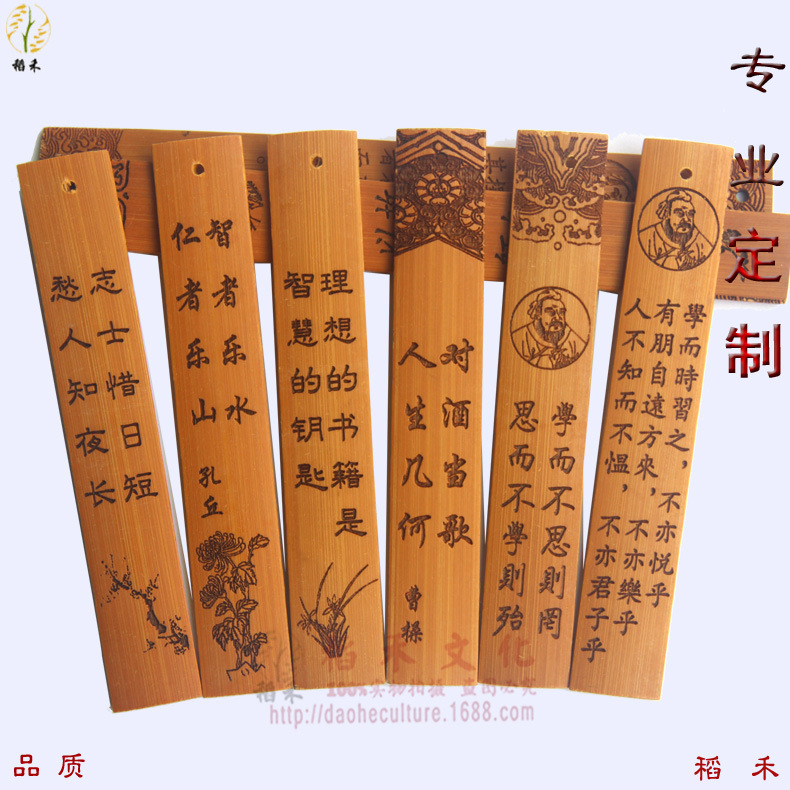 稻禾
专业定制
志士惜日短
愁人知夜长
智者乐水
仁者乐山
孔丘
理想的书籍是
智慧的钥匙
对酒当歌
人生几何
曹操
學而不思則罔
思而不學則殆
學而時習之，不亦悦乎
有朋自遠方來，不亦樂乎
人不知而不愠，不亦君子乎
稻禾文化
稻禾
100%实物拍摄 盗图必究
http://daoheculture.1688.com
品质
稻禾